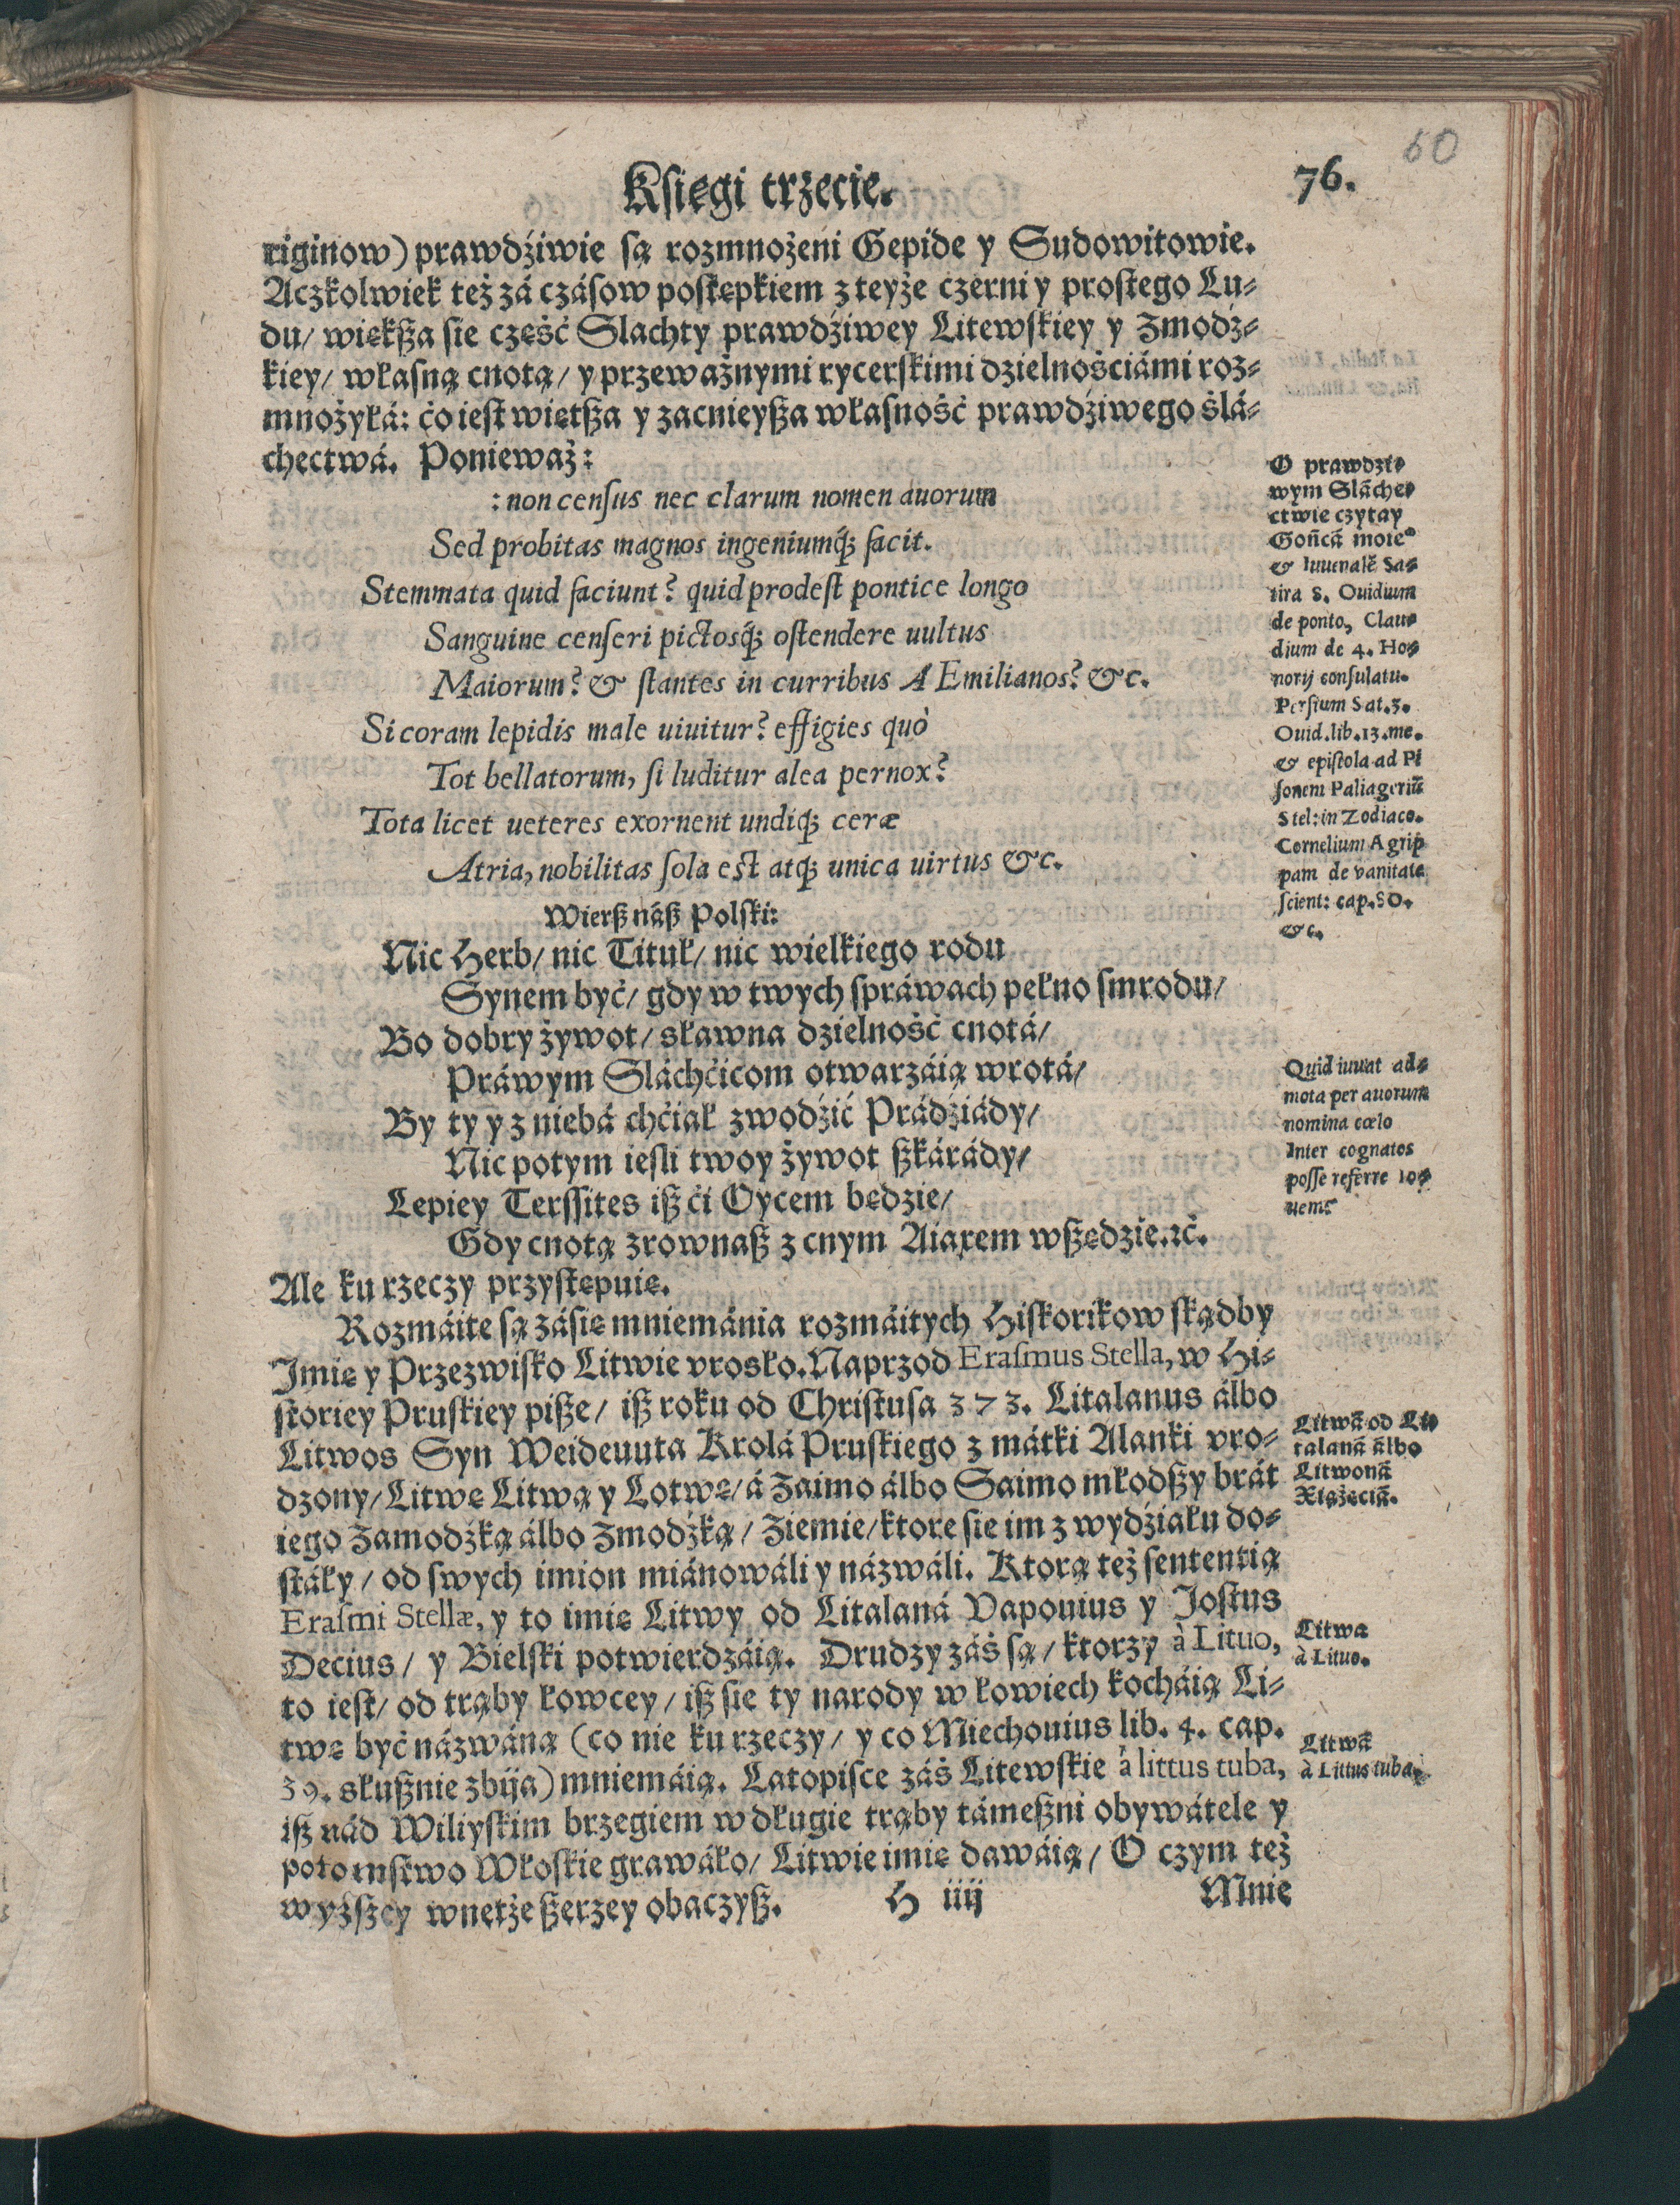 60
Księgi trzecie. 76.
riginow) prawdźiwie są rozmnożeni Gepide y Sudowitowie.
Aczkolwiek też zá czásow postępkiem z teyże czerni y prostego Lu⸗
du/ większa sie część Slachty prawdźiwey Litewskiey y Zmodz⸗
kiey/ własną cnotą/ y przeważnymi rycerskimi dzielnośćiámi roz⸗
mnożyłá: ċo iest więtsza y zacnieysza własność prawdźiwego ślá⸗
chectwá. Ponieważ:
: non census nec clarum nomen auorum
Sed probitas magnos ingeniumq́; facit.
Stemmata quid faciunt? quid prodest pontice longo
Sanguine censeri pictosq́; ostendere uultus
Maiorum? & stantes in curribus AEmilianos? &c.
Si coram lepidis male uiuitur? effigies quò
Tot bellatorum, si luditur alea pernox?
Tota licet ueteres exornent undiq; ceræ
Atria, nobilitas sola est atq; unica uirtus &c.
Wiersz nász Polski:
Nic Herb/ nic Tituł/ nic wielkiego rodu
Synem być/ gdy w twych spráwach pełno smrodu/
Bo dobry żywot/ sławna dzielność cnotá/
Práwym Sláchćicom otwarzáią wrotá/
By ty y z niebá chćiał zwodźić Prádźiády/
Nic potym iesli twoy żywot szkárády/
Lepiey Terssites isz ći Oycem będzie/
Gdy cnotą zrownasz z cnym Aiaxem wszędzie. ꝛć.
Ale ku rzeczy przystępuię.
Rozmáite są zásię mniemánia rozmáitych Historikow skądby
Imię y Przezwisko Litwie vrosło. Naprzod Erasmus Stella, w Hi⸗
storiey Pruskiey pisze/ isz roku od Christusa 373. Litalanus álbo
Litwos Syn Weideuuta Krolá Pruskiego z mátki Alanki vro⸗
dzony/ Litwę Litwą y Lotwę/ á Zaimo álbo Saimo młodszy brát
iego Zamodźką álbo Zmodźką/ Ziemie/ ktore sie im z wydźiału do⸗
stáły/ od swych imion miánowáli y názwáli. Ktorą też sententią
Erasmi Stellæ, y to imię Litwy od Litalaná Vapouius y Jostus
Decius/ y Bielski potwierdzáią. Drudzy záś są/ ktorzy à Lituo,
to iest/ od trąby łowcey/ isz sie ty narody w łowiech kocháią Li⸗
twę być názwáną (co nie ku rzeczy/ y co Miechouius lib. 4. cap.
39. słusznie zbija) mniemáią. Latopisce záś Litewskie à littus tuba,
isz nád Wiliyskim brzegiem w długie trąby támeszni obywátele y
potomstwo Włoskie grawáło/ Litwie imię dawáią/ O czym też
wyższey wnetże szerzey obaczysz. H iiij Mnie
O prawdzi⸗
wym Sláche⸗
ctwie czytay
Gońcá moie°
& Iuuenalẽ Sa⸗
tira 8. Ouidium
de ponto, Clau⸗
dium de 4. Ho⸗
norij consulatu.
Persium Sat. 3.
Ouid. lib. 13. me.
& epistola ad Pi
sonem Paliageriũ
Stel: in Zodiaco.
Cornelium Agrip
pam de vanitate
scient: cap. 80.
&c.
Quid iuuat ad⸗
mota per auorum
nomina cœlo
Inter cognatos
posse referre Io⸗
uem?
Litwá od Li⸗
talaná álbo
Litwoná
Xiążęciá.
Litwa
à Lituo.
Litwá
à Littus tuba.